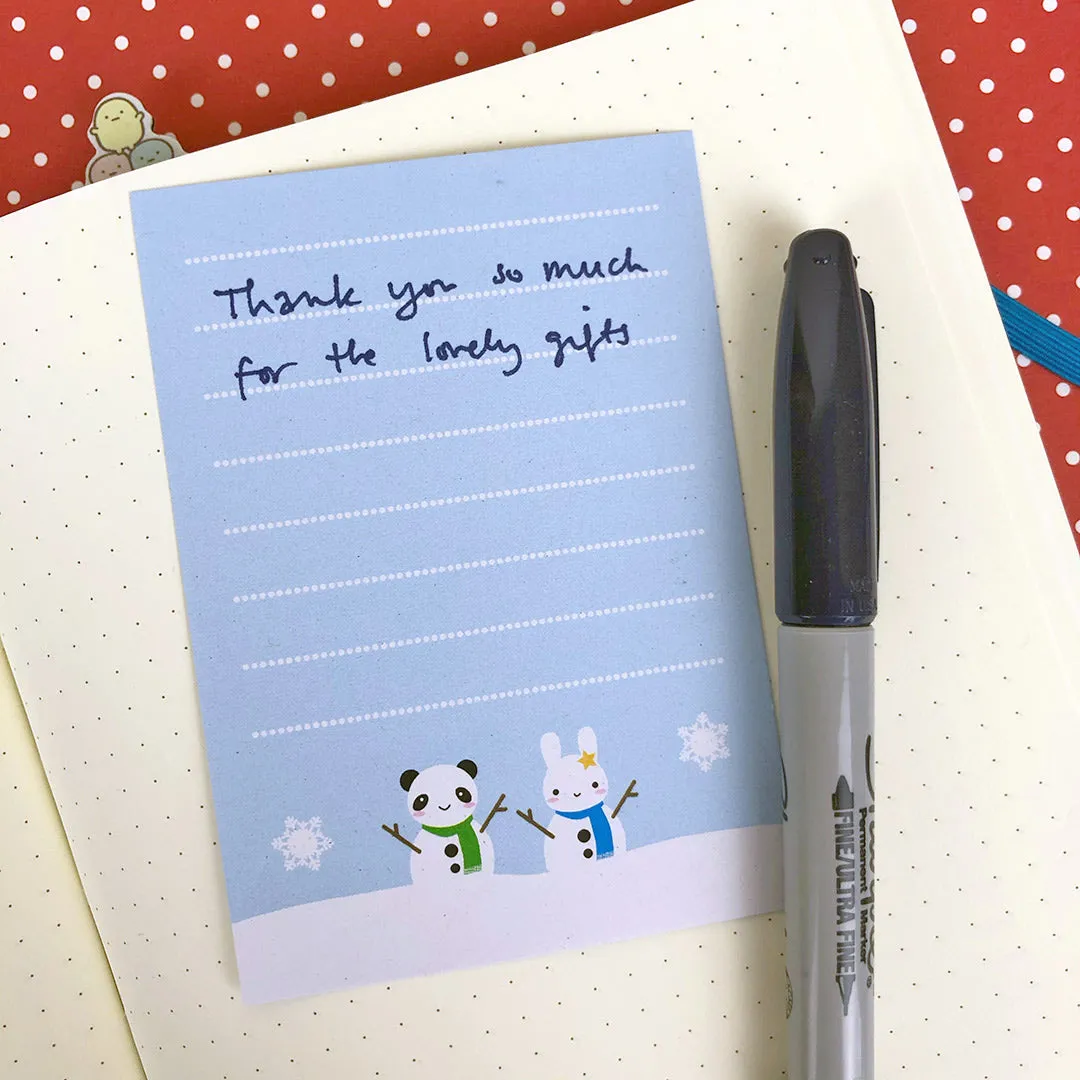 Thank you so much
for the lovely gifts
Permanent Marker
FINE/ULTRA FINE